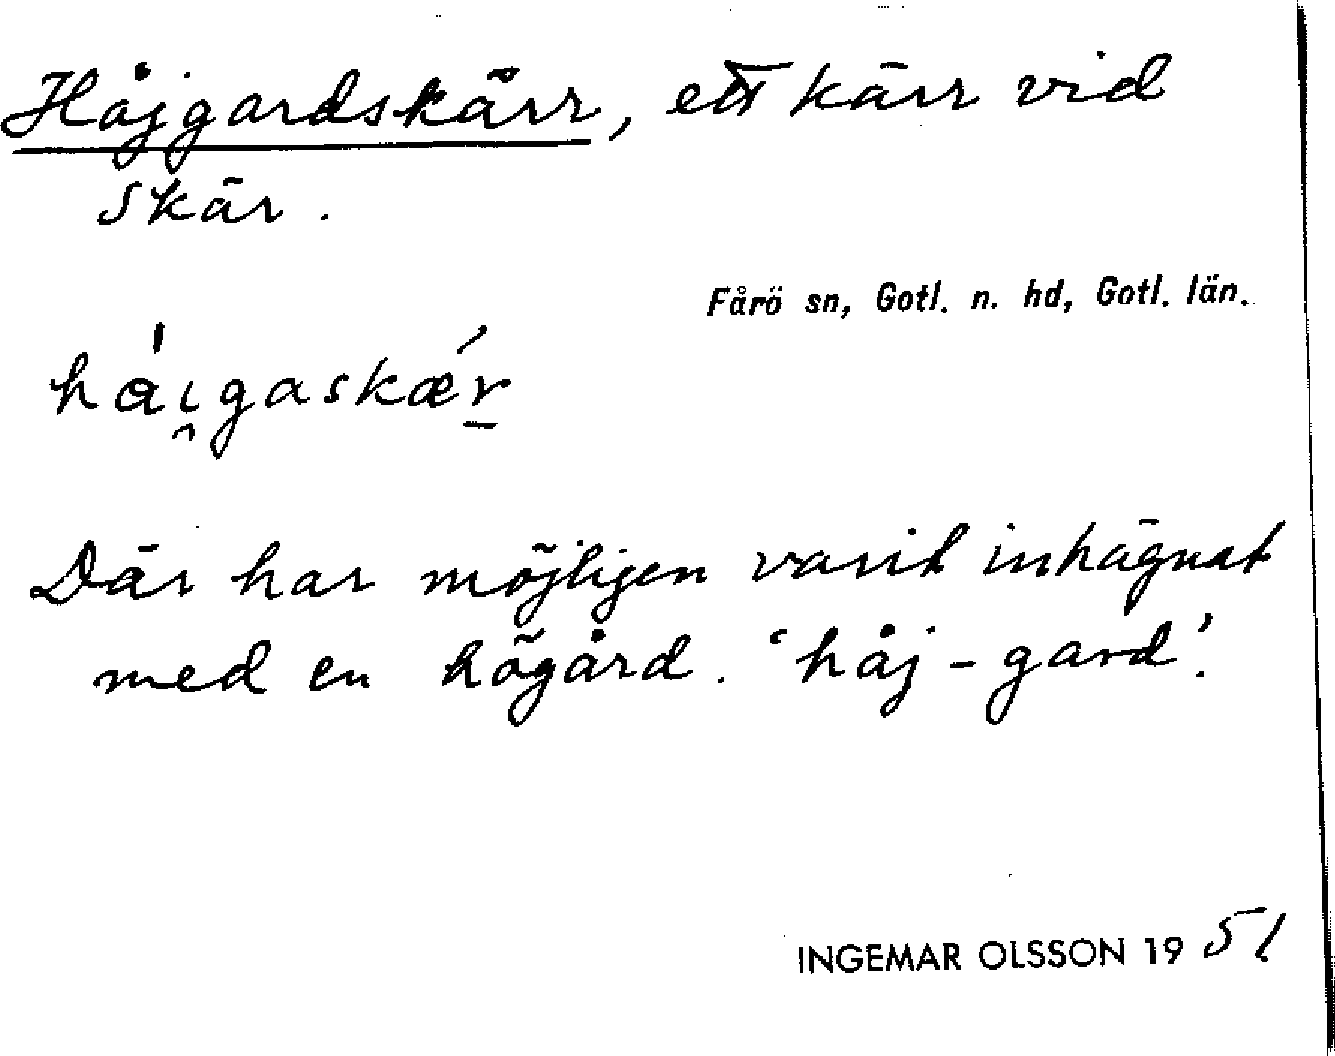 Håjgardskärr, ett kärr vid
Skär.
Fårö sn, Gotl. n. hd, Gotl. län.
hái̯gaskǽr̲
Där har möjligen varit inhägnat
med en högård. 'håj-gard'.
INGEMAR OLSSON 1951